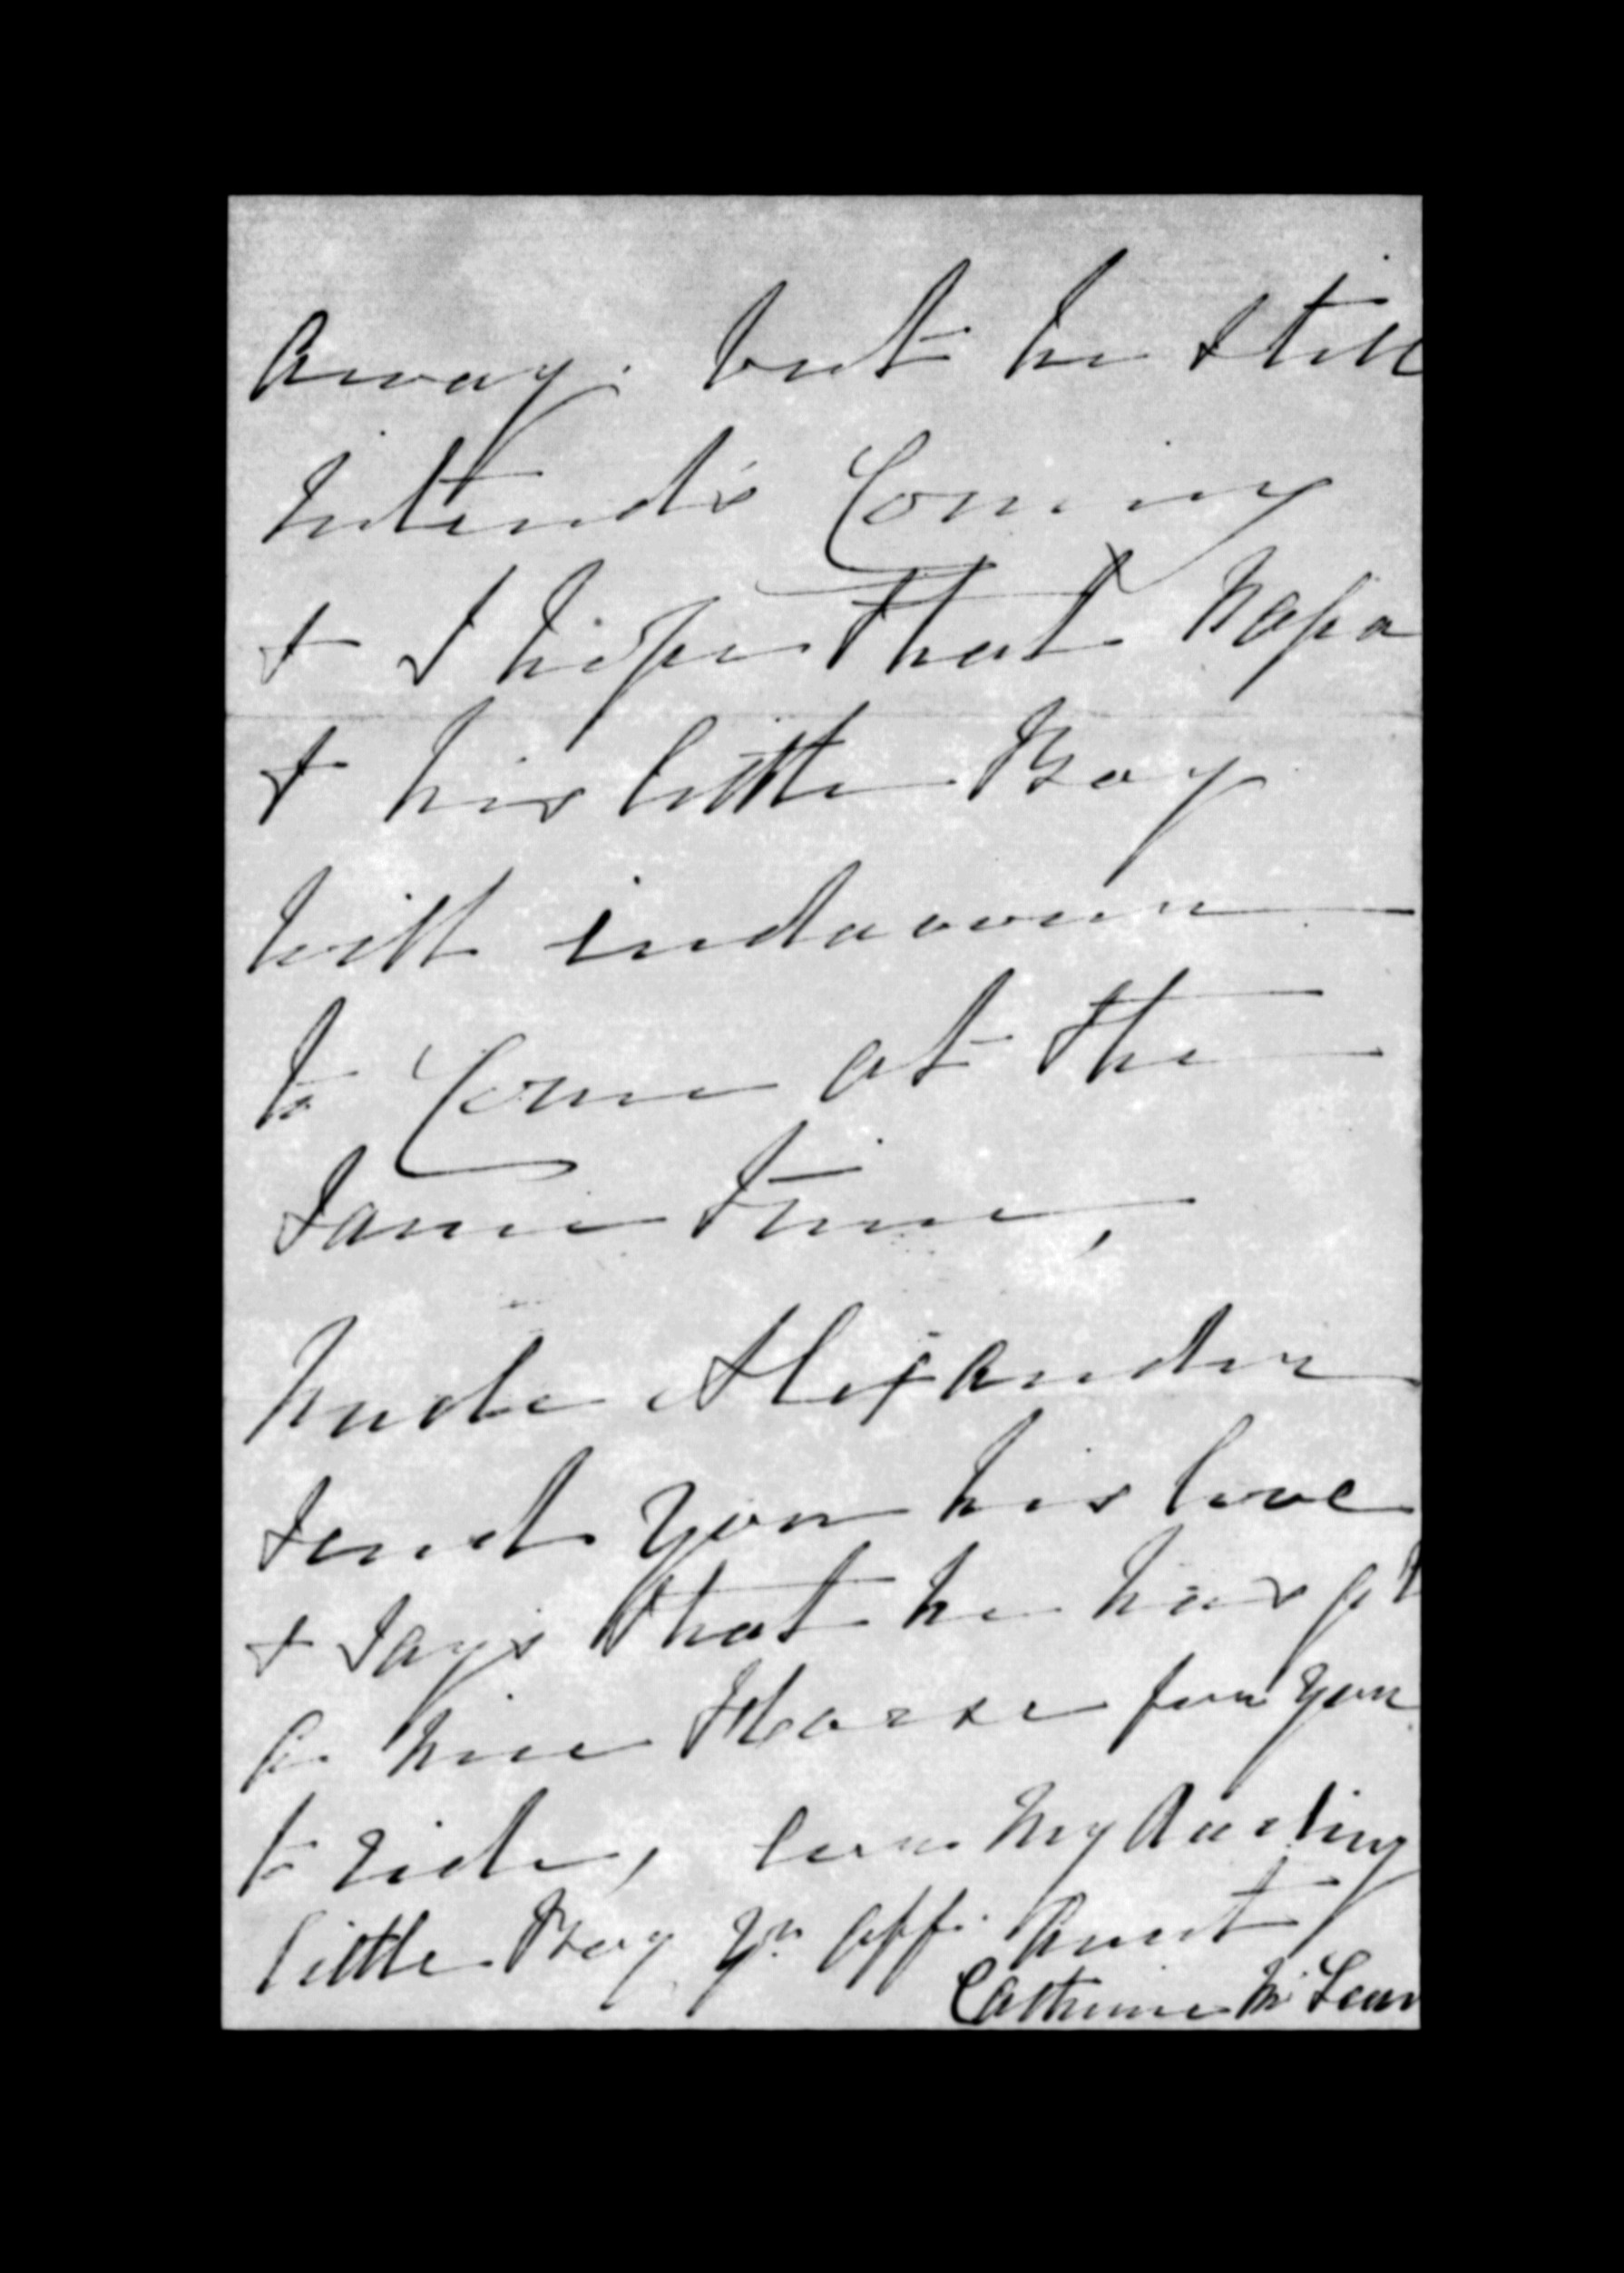 Away. but he still
intends Coming
& I hope that Papa
& his little Boy
will indavour
to Come at the
Same time,
Uncle Alexander
Send you his love
& Says that he has got
a nice Horse for you
to ride, love my darling
little Boy Yr. aff. Aunt
Catherine McLean